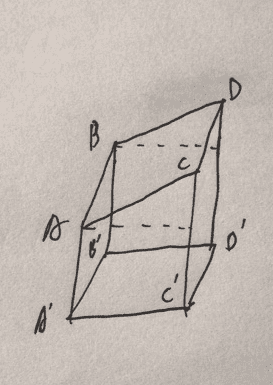 D
B
C
A
B'
D'
C'
A'